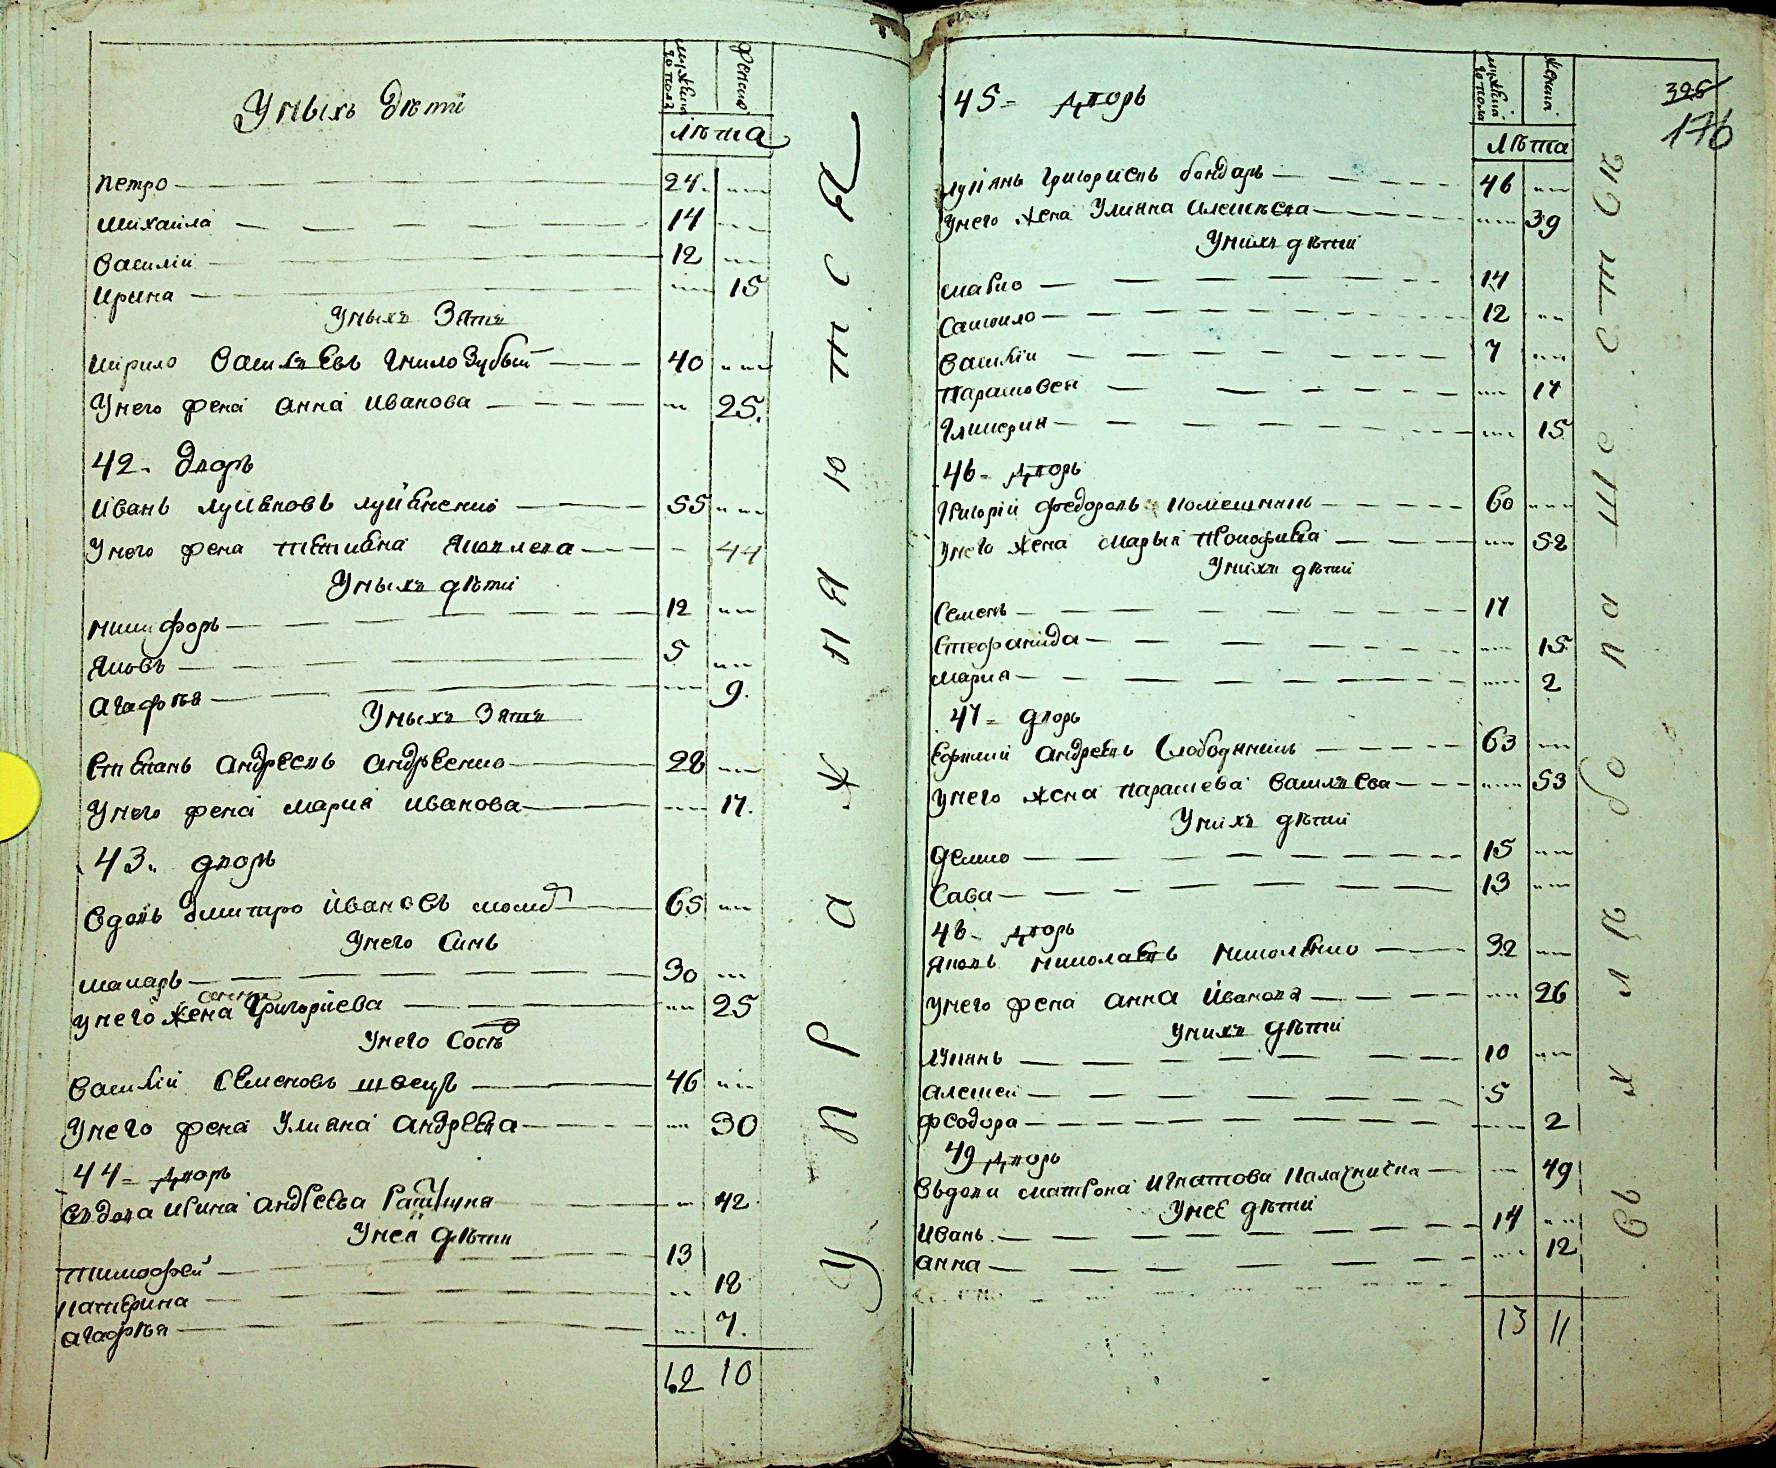 Уныхъ дѣти
мужеска полу
женска
лѣта
Петро 24
Михаила 14
Василій 12
Ирина 15
Уныхъ Зять
Кирило Васильевъ Гнилозубый 40
Унего жена Анна Иванова 25.
42. дворъ
Иванъ Лукяновъ Лукяненко 55
Унего жена Татияна Яковлева 44
Унихъ дѣти
Никифоръ 12
Яковъ 5
Агафья 9.
Унихъ Зять
Степанъ Андреевъ Андреенко 28
Унего жена Мария Иванова 17.
43. дворъ
Вдовъ Дмитро Ивановъ 65
Унего Синъ
Макаръ 30
Анна
Унего жена Григорйева 25
Унего Сосѣд
Василій Семеновъ Швецъ 46
Унего жена Улияна Андреева 30
44 = дворъ
Вдова Ирина Андреева 42
Унея дѣти
Тимофей 13
Катерина 18
Агафья 7.
12 10
395
176
45 = дворъ
мужеска полу
женска
лѣта
Лукянъ Григориевъ бондаръ 46
Унего жена Улияна Алексѣева 39
Унихъ дѣтии
Павло 14
Самойло 12
Василій 7
Парасковея 17
Гликерия 15
46 = дворъ
Григорій Федоровъ 60
Унего жена Марья Прокофиева 52
Унихъ дѣтии
Семенъ 17
Стефанида 15
Мария 2
47 = дворъ
Ефимий Андреевъ Слободяникъ 63
Унего жена Параскева Васильева 53
Унихъ дѣтии
Демко 15
Сава 13
48 = дворъ
Яковъ Николаевъ 32
Унего жена Анна Иванова 26
Унихъ дѣтии
Лукянъ 10
Алексей 5
Феодора 2
49 дворъ
Вьдова Матрона Игнатова 49
Унеё дѣтии
Иванъ 14
Анна 12
13 11